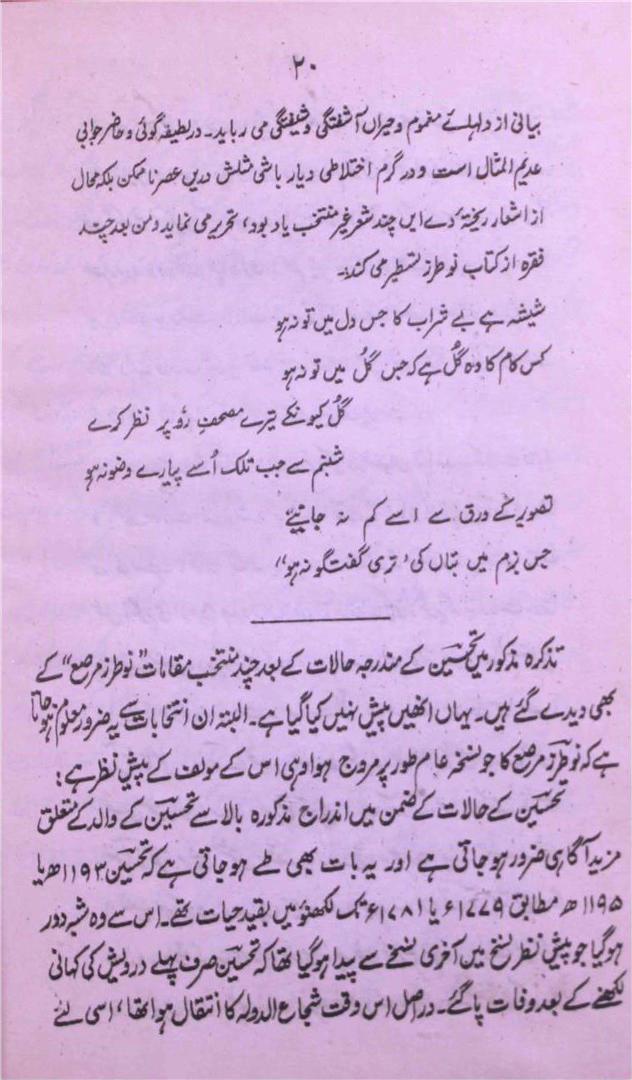 ۲۰
بیانی از دلہائے مغموم و حیراں آشفتگی و شیفتگی می رباید۔ در لطیفہ گوئی و حاضر جوابی
عدیم المثال است و در گرم اختلاطی و یار باشی مثلش دریں عصر نا ممکن بلکہ محال
از اشعار ریختۂ وے ایں چند شعر غیر منتخب یاد بود، تحریر می نماید و من بعد چند
فقرہ از کتاب نو طرز تسطیر می کند:۔
شیشہ ہے بے شراب کا جس دل میں تو نہ ہو
کس کام کا وہ گُل ہے کہ جس گُل میں تو نہ ہو
گُل کیونکے تیرے مصحفِ رُو پر نظر کرے
شبنم سے جب تلک اُسے پیارے وضو نہ ہو
تصویر کے ورق سے اسے کم نہ جانیئے
جس بزم میں بتاں کی، تری گفتگو نہ ہو“
تذکرہ مذکور میں تحسینؔ کے مندرجہ حالات کے بعد چند منتخب مقامات ”نو طرز مرصع“ کے
بھی دیدے گئے ہیں۔ یہاں انھیں پیش نہیں کیا گیا ہے۔ البتہ ان انتخابات سے یہ ضرور معلوم ہو جاتا
ہے کہ نو طرز مرصع کا جو نسخہ عام طور پر مروج ہوا وہی اس کے مولف کے پیش نظر ہے؛
تحسینؔ کے حالات کے ضمن میں اندراج مذکورہ بالا سے تحسینؔ کے والد کے متعلق
مزید آگاہی ضرور ہو جاتی ہے اور یہ بات بھی طے ہو جاتی ہے کہ تحسینؔ ۱۱۹۳ھ یا
۱۱۹۵ھ مطابق ۱۷۷۹ء یا ۱۷۸۱ء تک لکھنؤ میں بقید حیات تھے۔ اس سے وہ شبہ دور
ہو گیا جو پیش نظر نسخ میں آخری نسخے سے پیدا ہو گیا تھا کہ تحسینؔ صرف پہلے درویش کی کہانی
لکھنے کے بعد وفات پا گئے۔ در اصل اس وقت شجاع الدولہ کا انتقال ہوا تھا، اسی لئے